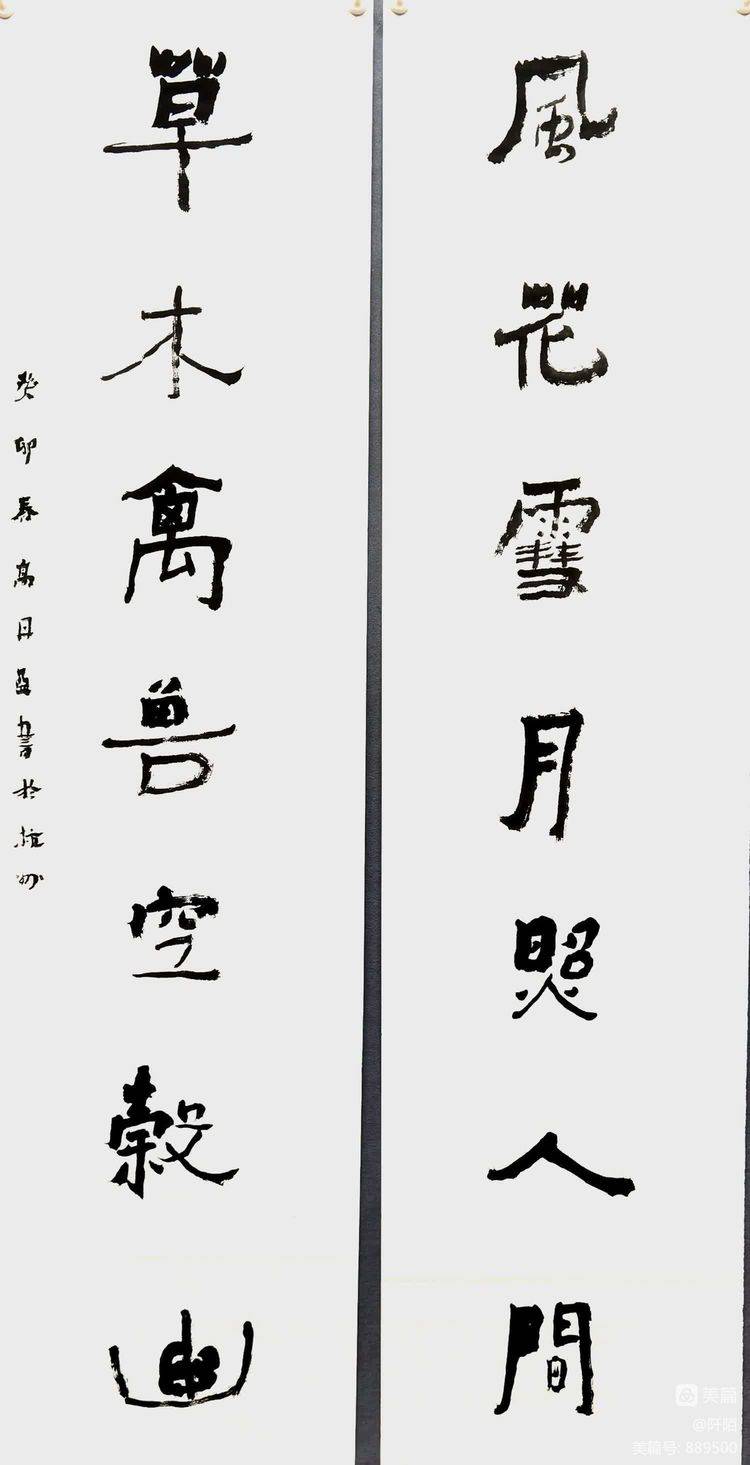 風花雪月照人間
草木禽兽空穀幽
癸卯春高日 書於杭州
美篇
@阡陌
美篇号: 889500